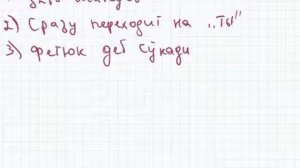 2) Сразу переходит на „ты"
3) фетюк деб сўкади